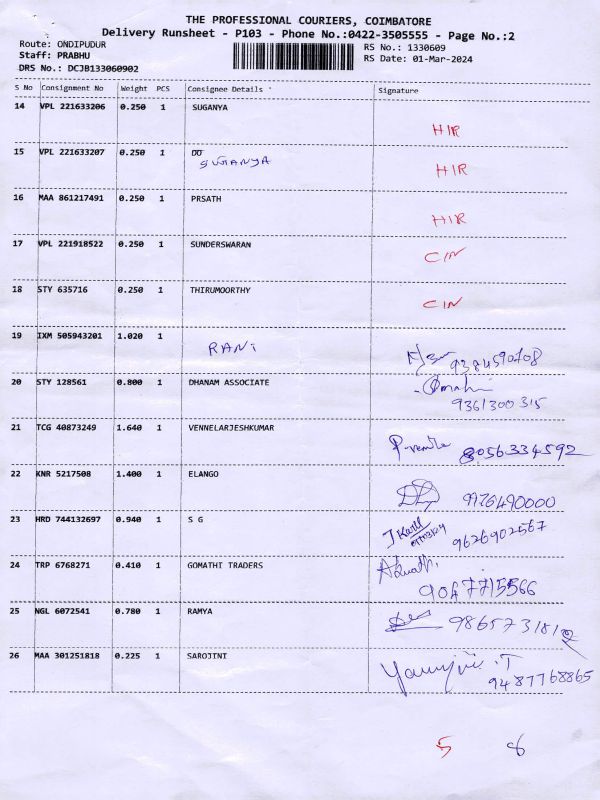 THE PROFESSIONAL COURIERS, COIMBATORE
Delivery Runsheet - P103 - Phone No.:0422-3505555 - Page No.:2
Route: ONDIPUDUR RS No.: 1330609
Staff: PRABHU RS Date: 01-Mar-2024
DRS No.: DCJB133060902
S No Consignment No Weight PCS Consignee Details Signature
14 VPL 221633206 0.250 1 SUGANYA
HIR
15 VPL 221633207 0.250 1 DO
SUGANYA HIR
16 MAA 861217491 0.250 1 PRSATH
HIR
17 VPL 221918522 0.250 1 SUNDERSWARAN
CIN
18 STY 635716 0.250 1 THIRUMOORTHY
CIN
19 IXM 505943201 1.020 1
RANI 9384590708
20 STY 128561 0.800 1 DHANAM ASSOCIATE
9361300315
21 TCG 40873249 1.640 1 VENNELARJESHKUMAR
8056334592
22 KNR 5217508 1.400 1 ELANGO
9976490000
23 HRD 744132697 0.940 1 S G
9626902567
24 TRP 6768271 0.410 1 GOMATHI TRADERS
9047715566
25 NGL 6072541 0.780 1 RAMYA
9865731812
26 MAA 301251818 0.225 1 SAROJINI
9487768865
5 8